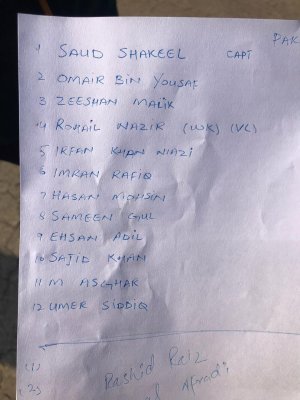 PAK
1 SAUD SHAKEEL CAPT
2 OMAIR BIN YOUSAF
3 ZEESHAN MALIK
4 ROHAIL NAZIR (WK) (VC)
5 IRFAN KHAN NIAZI
6 IMRAN RAFIQ
7 HASAN MOHSIN
8 SAMEEN GUL
9 EHSAN ADIL
10 SAJID KHAN
11 M ASGHAR
12 UMER SIDDIQ
(1) Rashid Riaz
(2) Afradi